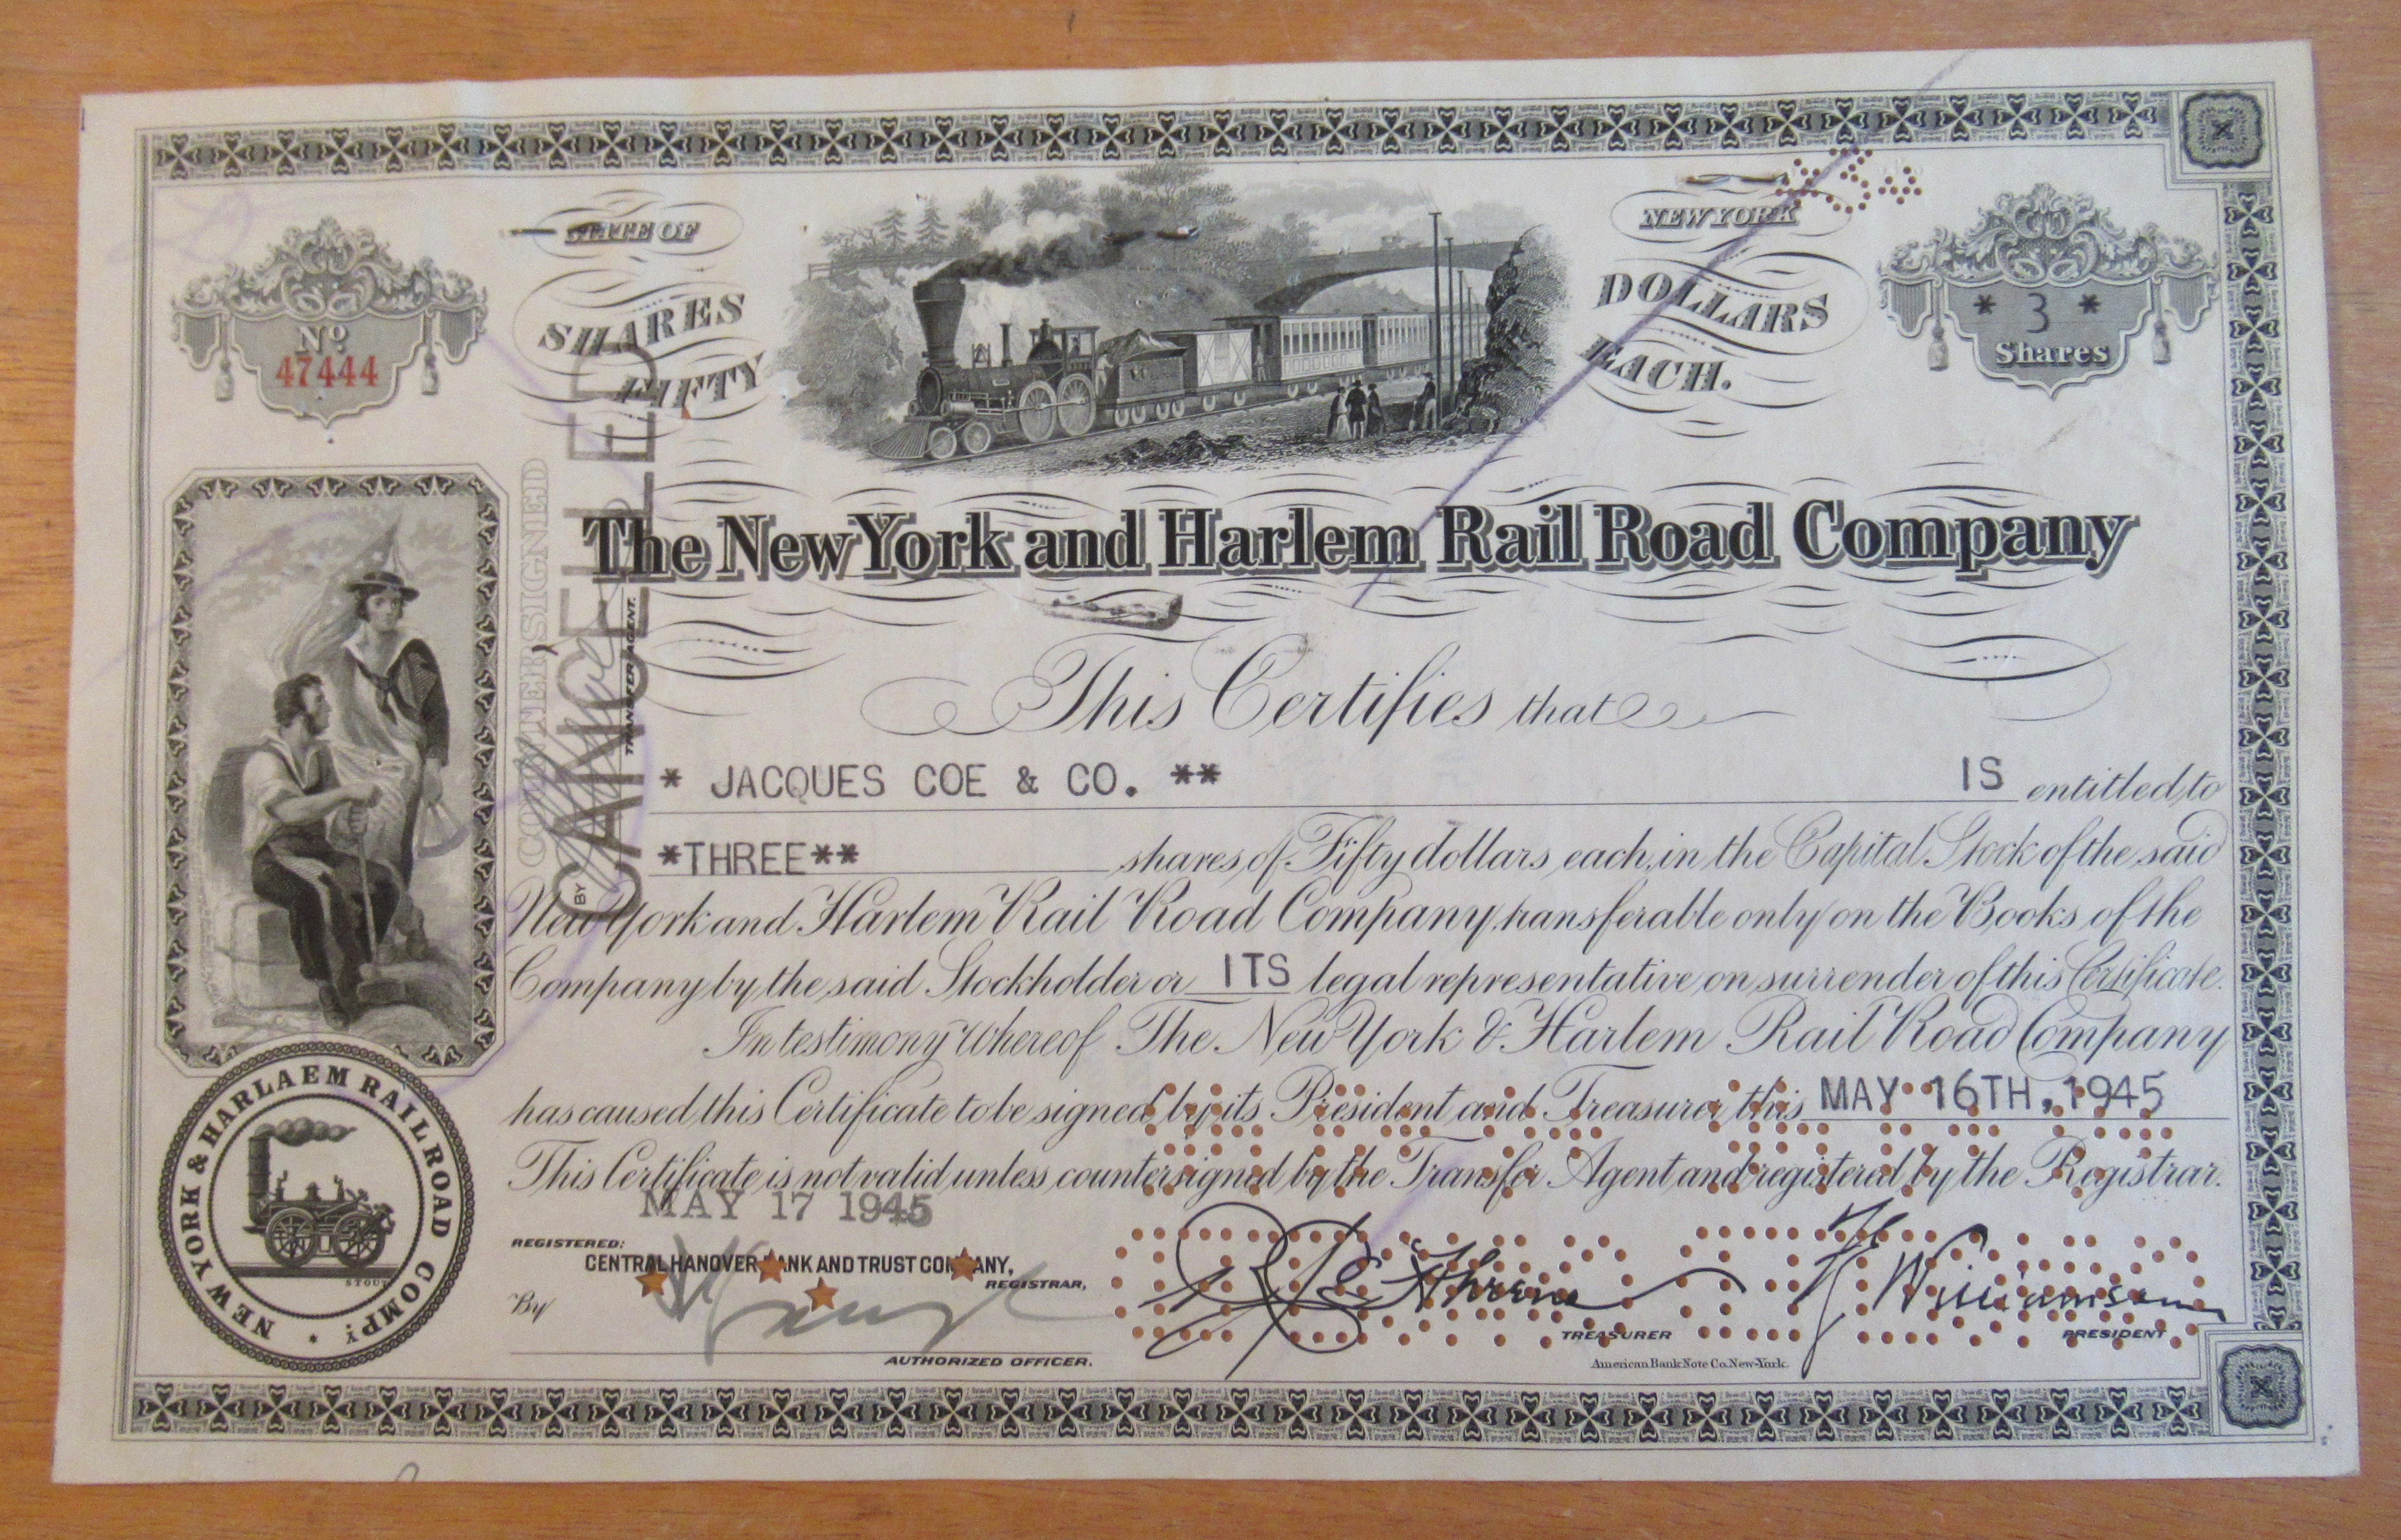 STATE OF
NEW YORK
SHARES
FIFTY
DOLLARS
EACH.
No
47444
* 3 *
Shares
The New York and Harlem Rail Road Company
COUNTERSIGNED
CANCELLED
TRANSFER AGENT.
BY
This Certifies that
* JACQUES COE & CO. ** IS entitled to
*THREE** shares of Fifty dollars each, in the Capital Stock of the said
New York and Harlem Rail Road Company, transferable only on the Books of the
Company by the said Stockholder or ITS legal representative on surrender of this Certificate.
In testimony whereof The New York & Harlem Rail Road Company
has caused this Certificate to be signed by its President and Treasurer, this MAY 16TH, 1945
This Certificate is not valid unless countersigned by the Transfer Agent and registered by the Registrar.
MAY 17 1945
REGISTERED:
CENTRAL HANOVER BANK AND TRUST COMPANY,
REGISTRAR,
By
AUTHORIZED OFFICER.
TREASURER
Williamson
PRESIDENT
American Bank Note Co. New-York.
NEW YORK & HARLAEM RAILROAD COMPY. *
STOUT